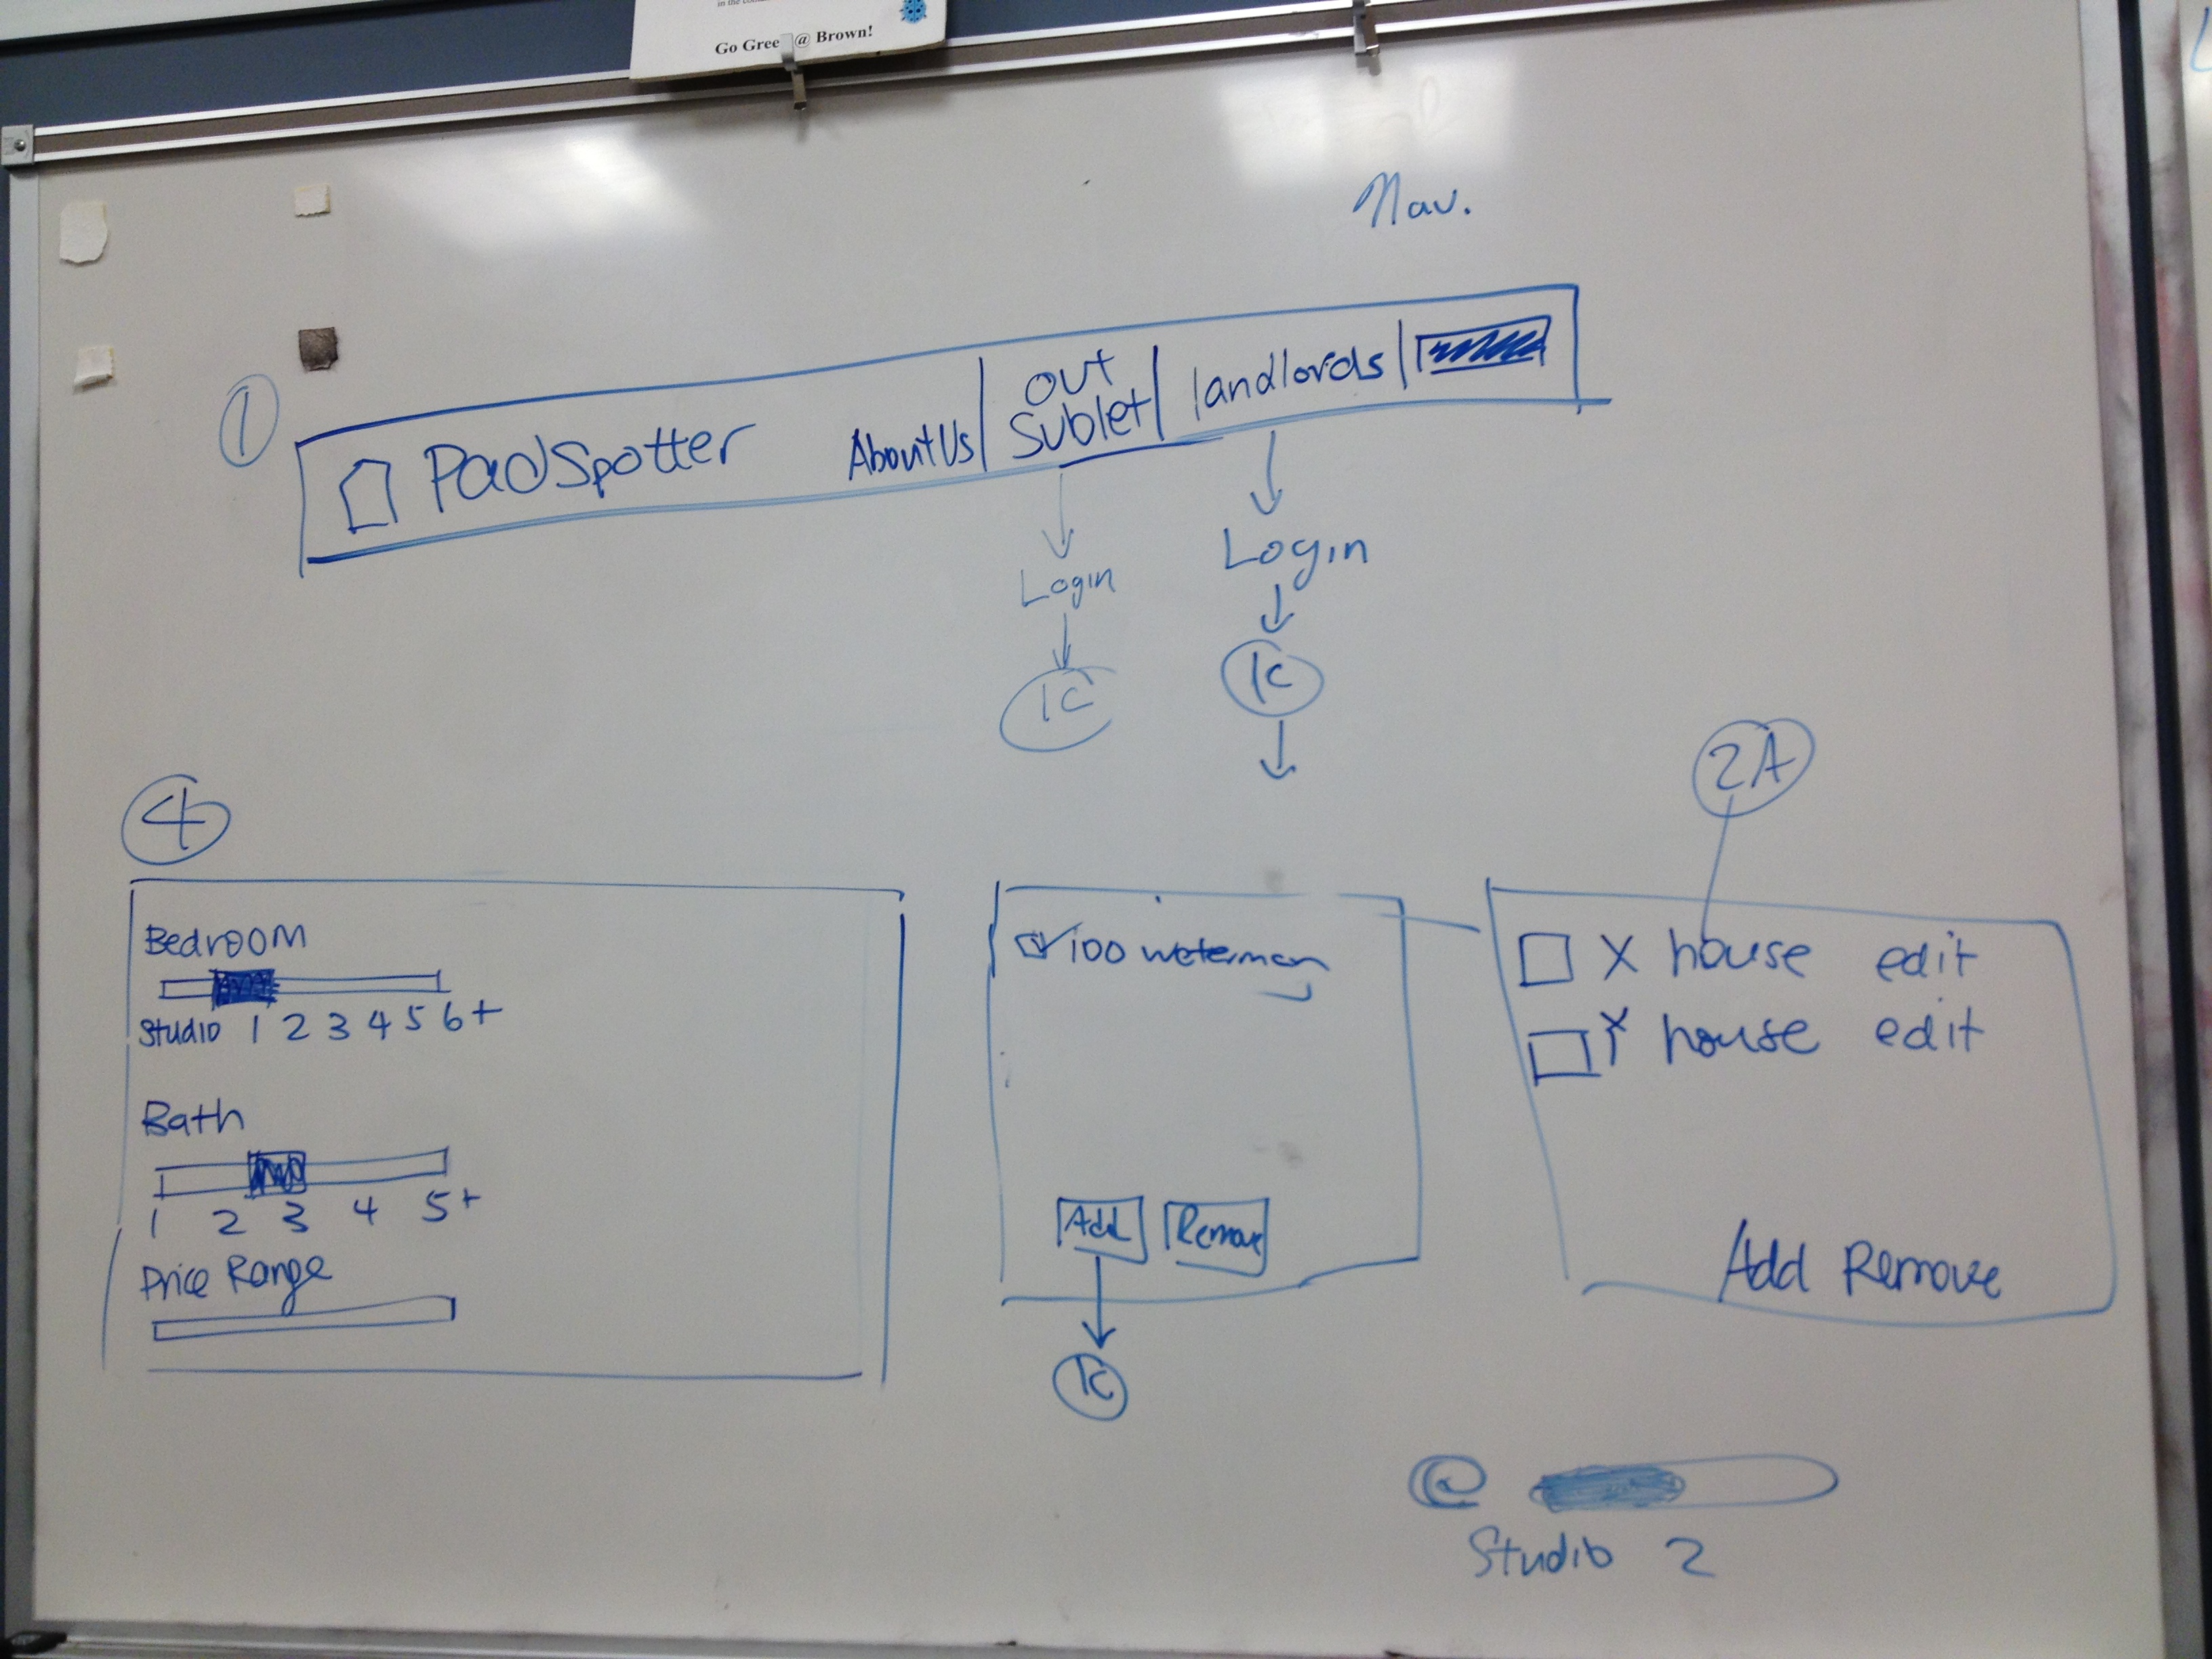 Go Gree @ Brown!
Nav.
1
PadSpotter About Us | Out Sublet | landlords |
Login Login
1C 1C
4
2A
Bedroom
Studio 1 2 3 4 5 6+
Bath
1 2 3 4 5+
Price Range
100 waterman
Add Remove
1C
X house edit
Y house edit
Add Remove
Studio 2